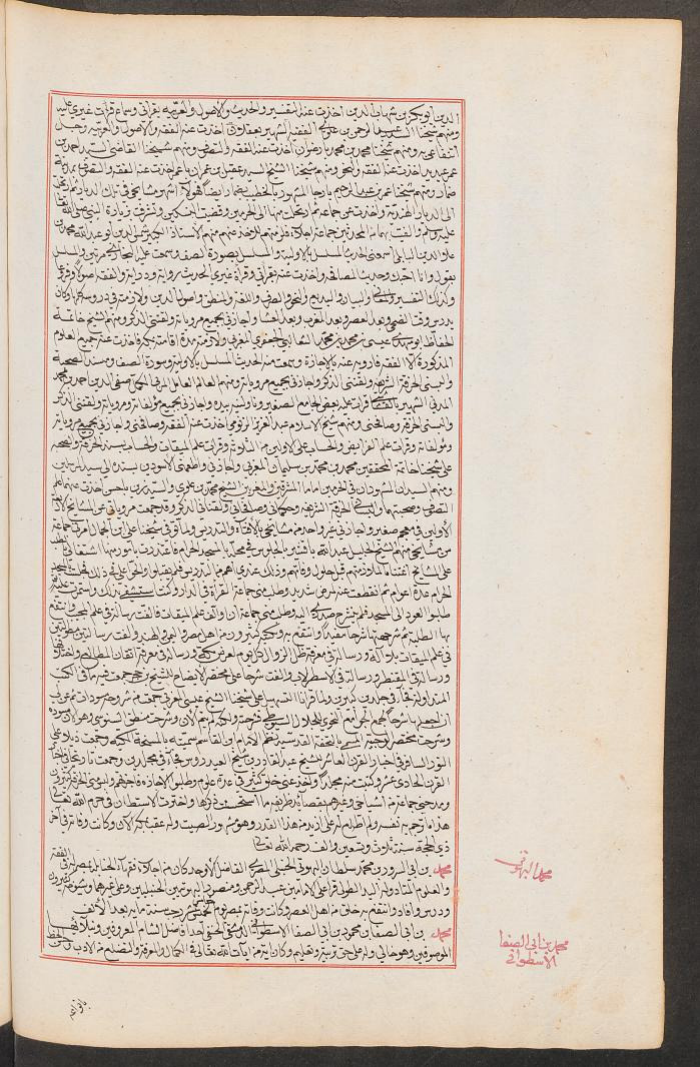 الدين أبو بكر بن شهاب الدين أخذت عنه التفسير والحديث والأصول والعربية بقراءتي وسماع قراءة غيري عليه
ومنهم شيخنا عبد الرحمن بن علوي الفقيه الشهير أخذت عنه الفقه والأصول والعربية وجل
انتفاعي به ومنهم شيخنا محمد بن محمد بارضوان أخذت عنه الفقه والتصوف ومنهم شيخنا القاضي السيد أحمد بن
عمر عيديد أخذت عنه الفقه والنحو ومنهم شيخنا الشيخ السيد عقيل بن عمران باعمر أخذت عنه الفقه والتصوف بمدينة
ظفار ومنهم شيخنا عمر بن عبد الرحيم بارجا المشهور بالخطيب بظفار أيضا فهؤلاء أشهر مشايخي في تلك الديار ثم رحلت
إلى الديار الهندية وأخذت عن جماعة ثم ارتحلت منها إلى الحرمين وقضيت النسكين وتشرفت بزيارة النبي صلى الله تعالى
عليه وسلم ولقيت بهما من المحدثين جماعة أجلاء فمنهم الأستاذ الكبير شمس الدين أبو عبد الله محمد بن
علاء الدين البابلي أسمعني الحديث المسلسل بالأولية والمسلسل بسورة الصف وسمعت عليه البخاري مرتين والمسلسل
بقول وأنا أحبك وحديث المصافحة وأخذت عنه بقراءتي وقراءة غيري الحديث رواية ودراية والفقه أصولا وفرعا
وكذلك التفسير والمعاني والبيان والبديع والنحو والصرف واللغة والمنطق وأصول الدين ولازمته في دروسه كلها وكان
يدرس وقت الضحى وبعد العصر وبعد المغرب وبعد العشاء وأجازني بجميع مروياته ولقنني الذكر ومنهم الشيخ خاتمة
الحفاظ أبو مهدي عيسى بن محمد بن محمد الثعالبي الجعفري المغربي ولازمته مدة إقامته بمكة فأخذت عنه جميع العلوم
المذكورة إلا الفقه فأرويه عنه بالإجازة وسمعت منه الحديث المسلسل بالأولية وسورة الصف ومسند الصحبة
وألبسني الخرقة الشريفة ولقنني الذكر وأجازني بجميع مروياته ومنهم العالم العامل المربي الكامل صفي الدين أحمد بن محمد
المدني الشهير بالقشاشي قرأت عليه بعض الجامع الصغير وناولنيه بيده وأجازني بجميع مؤلفاته ومروياته ولقنني الذكر
وألبسني الخرقة وصافحني ومنهم شيخ الإسلام عبد العزيز الزمزمي أخذت عنه الفقه وصافحني وأجازني بجميع مروياته
ومؤلفاته وقرأت علم الفرائض والحساب على الأولين من الثلاثة وقرأت علم الميقات والحساب
على شيخنا خاتمة المحققين محمد بن محمد بن سليمان المغربي وأجازني وأطعمني الأسودين بسنده إلى سيد المرسلين
ومنهم السيدان المشهوران في الحرمين إماما المشرقين والمغربين الشيخ محمد بن علوي والسيد زين باحسن أخذت عنهما علم
التصوف وصحبتهما وألبسني الخرقة الشريفة وحكماني وصافحاني ولقناني الذكر وقد جمعت مروياتي عن المشايخ الثلاثة
الأولين في معجم صغير وأجازني غير واحد من مشايخي بالإفتاء والتدريس ولما توفي شيخنا علي بن الجمال أمرني جماعة
من مشايخي منهم الشيخ الجليل عبد الله باقشير بالجلوس في محله بالمسجد الحرام فاعتذرت بأمور منها اشتغالي بالطلب
على المشايخ اغتناما لملازمتهم قبل حلول وفاتهم وذلك عندي أهم من التدريس فلم يقبلوا وألح علي في ذلك فجلست بالمسجد
الحرام عدة أعوام ثم انقطعت عنه لمرض شديد وطلب مني جماعة القراءة في الدار وكنت استشفي بذلك واستمريت عليه
طلبوا العود إلى المسجد فلم ينشرح صدري إليه وطلب مني جماعة أن أؤلف علم الميقات فألفت رسالة في علم المجيب وانتفع
بها الطلبة ثم شرحتها شرحا مفيدا وانتفع به وكتبه كثيرون من أهل مصر واليمن والهند وألفت رسالتين مطولتين
في علم الميقات بلا آلة ورسالة في معرفة ظل الزوال كل يوم لعرض مكة ورسالة في معرفة اتفاق المطالع واختلافها
ورسالة في المقنطر ورسالة في الاسطرلاب وألفت شرحا على مختصر الإيضاح للشيخ ابن حجر جمعت فيه ما في الكتب
المتداولة فجاء في مجلدين كبيرين ولما قرأنا التسهيل على شيخنا الشيخ عيسى المغربي جمعت من شروحه مسودات ثم عن لي
أن أجعلها شرحا لجمع الجوامع في النحو للجلال السيوطي فشرحته ولم يتم الآن وشرحت منطق السنوسي وهو الآن مسودة
وشرحت مختصر الرحبية المسمى بالتحفة القدسية نظم الإمام ابن الهائم سميته بالمنحة المكية وجمعت ذيلا على
النور السافر في أخبار القرن العاشر للشيخ عبد القادر بن شيخ العيدروس فجاء في مجلدين وجمعت تاريخا في أخبار
القرن الحادي عشر وكتبت منه مجلدا وأخذ عني خلق كثير في عدة علوم وطلبوا الإجازة فأجزتهم وألبسوني الخرقة كثيرون
ومدحني جماعة من مشايخي وغيرهم بقصائد ظريفة ما استحسن ذكرها واخترت الاستيطان في حرم الله تعالى
هذا ما ترجم به نفسه ولم أطلع له على أزيد من هذا القدر وهو مشهور الصيت وله عقب بمكة الآن وكانت وفاته في آخر
ذي الحجة سنة ثلاث وتسعين وألف رحمه الله تعالى
محمد بن أبي السرور بن محمد سلطان البهوتي الحنبلي المصري الفاضل الأوحد كان من أجلاء فقهاء الحنابلة بمصر له في الفقه
والعلوم المتداولة اليد الطولى قرأ على الإمامين عبد الرحمن ومنصور البهوتيين الحنبليين وعلى غيرهما وشيوخه كثيرون
ودرس وأفاد وانتفع به خلق من أهل العصر وكانت وفاته بمصر يوم الخميس خامس رجب سنة مائة بعد الألف
محمد بن أبي الصفا بن محمود بن أبي الصفا الاسطواني الدمشقي الحنفي أحد أفاضل الشام المعروفين ونبلائها
الموصوفين وهو خالي ولد على حق تربيته وتعليم وكان آية من آيات الله تعالى في الكمال والمعرفة والتضلع من الأدب وحسن الخط
محمد البهوتي
محمد بن أبي الصفا
الاسطواني